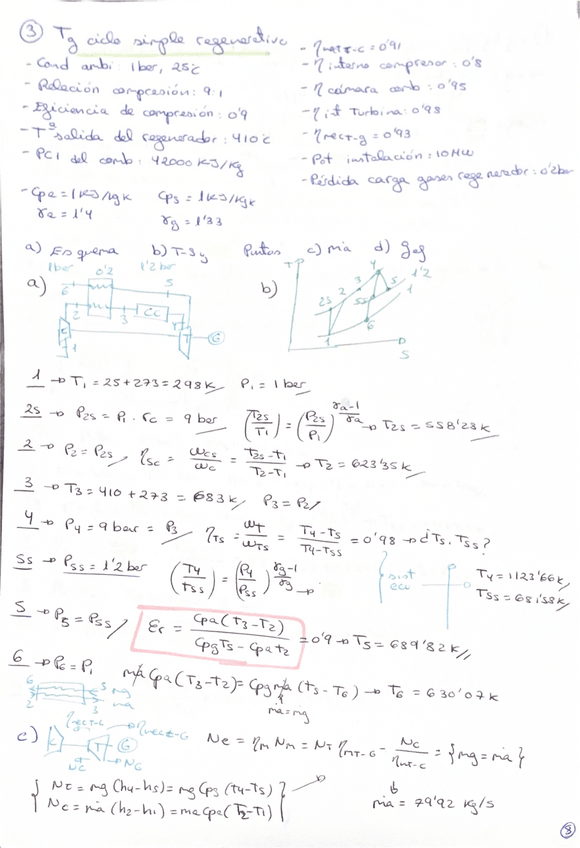 ③ Tg ciclo simple regenerativo
- Cond ambi: 1 bar, 25℃
- Relación compresión: 9:1
- Eficiencia de compresión: 0'9
- Tª salida del regenerador: 410℃
- PCI del comb: 42000 KJ/Kg
- Cpa = 1 KJ/kgK Cpg = 1 KJ/kgK
γa = 1'4 γg = 1'33
- ηmec T-C = 0'91
- η interno compresor: 0'8
- η cámara comb: 0'95
- η int Turbina: 0'98
- ηmec T-g = 0'93
- Pot instalación: 10 MW
- Pérdida carga gases regenerador: 0'2 bar
a) Esquema b) T-S y Puntos c) ṁa d) gef
a)
1 bar 0'2 1'2 bar
6 5
2 3 CC 4
C T G
1
b)
T 4 1'2
3 5 1
2s 2 5s
1 6
S
1 → T1 = 25+273 = 298 K P1 = 1 bar
2s → P2s = P1 · rc = 9 bar (T2s/T1) = (P2s/P1)^(γa-1/γa) → T2s = 558'28 K
2 → P2 = P2s, ηsc = wcs/wc = T2s-T1/T2-T1 → T2 = 623'35 K
3 → T3 = 410 + 273 = 683 K P3 = P2
4 → P4 = 9 bar = P3 ηTS = wT/wTS = T4-T5/T4-T5s = 0'98 → ¿T5, T5s?
5s → P5s = 1'2 bar (T4/T5s) = (P4/P5s)^(γg-1/γg) →
{ sist ecu
T4 = 1123'66 K
T5s = 681'58 K
5 → P5 = P5s Er = Cpa(T3-T2)/CpgT5 - CpaT2 = 0'9 → T5 = 689'82 K
6 → P6 = P1 ṁa Cpa(T3-T2) = Cpg ṁa (T5-T6) → T6 = 630'07 K
ṁa = ṁg
6 5 mg
2 3 ma
c) ηmec T-C ηmec T-G
C T G
Ne = ηm Nm = NT ηmT-G - Nc/ηmT-C = {mg = ma}
{ NT = mg (h4-h5) = mg Cpg (T4-T5)
Nc = ṁa (h2-h1) = ma Cpa (T2-T1) } →
ṁa = 79'92 Kg/S
⑧